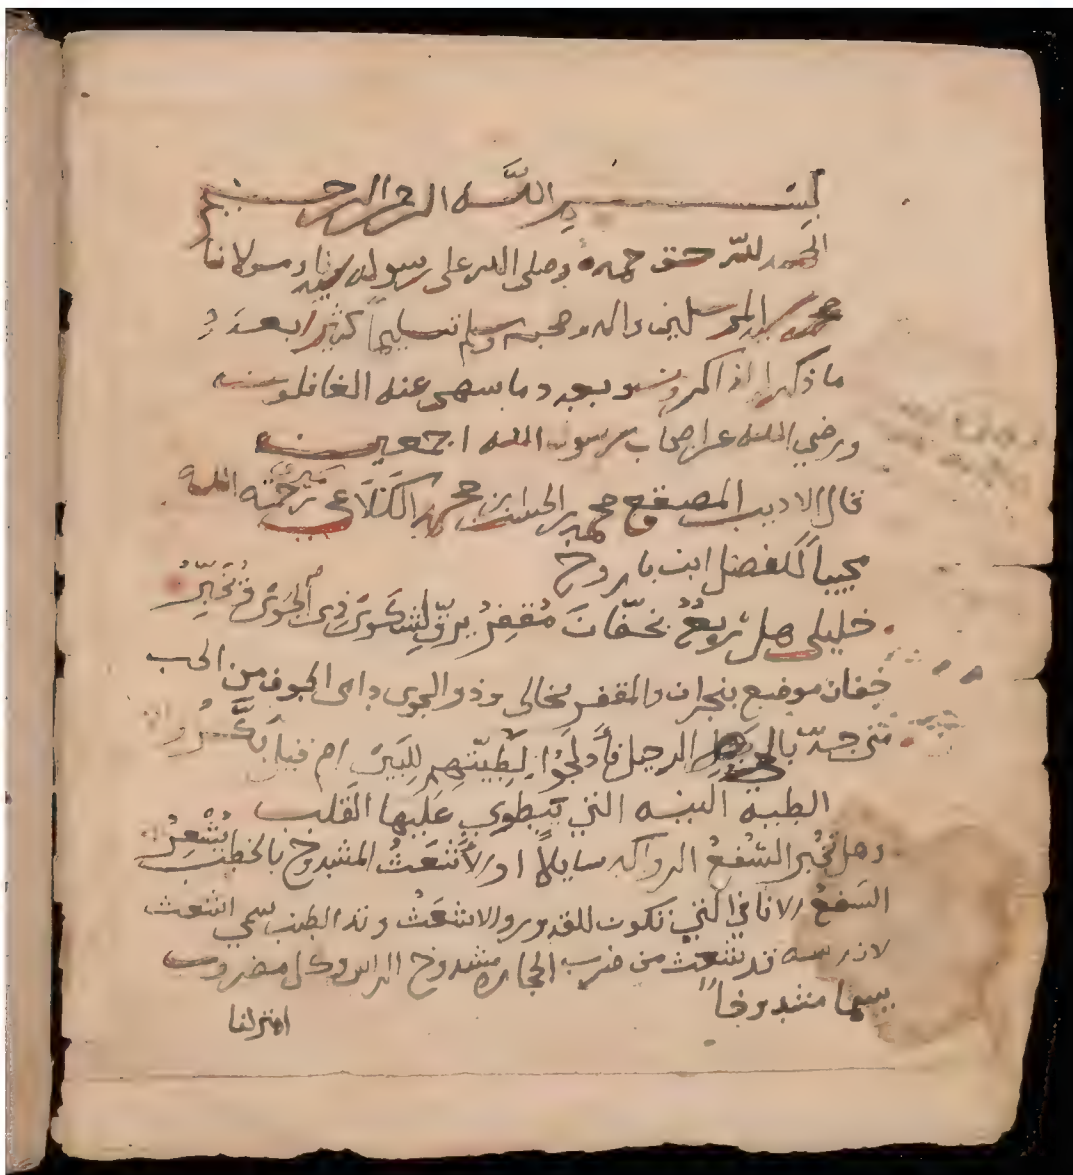 بسم الله الرحمن الرحيم
الحمد لله حق حمده وصلى الله على رسوله سيدنا ومولانا
محمد سيد المرسلين واله وصحبه وسلم تسليماً كثيراً بعدد
ما ذكره الذاكرون وبعدد ما سهى عنه الغافلون
ورضي الله عن اصحاب رسول الله اجمعين
قال الاديب المصقع محمد بن الحسن بن محمد الكَلَاعي رحمة الله
مجيباً للفضل ابن باروح
خليلي هل رَبعٌ بخفّان مُقفِرُ يرقّ لِشكوى ذي الجَوى فيُخَبِّرُ
خفان موضع بنجران والمقفر الخالي وذو الجوى داى الجوف من الحب
متى جدّ بالحي الرحيل فأدلَجُوا لِطِيّتهم للبَين ام فيه بَكَّرُوا
الطيه النيه التي ينطوي عليها القلب
وهل تخبر السُفعُ الرواكد سايلاً او الأشعَثُ المشدوخ بالخطب يُشْعِرُ
السُفعُ الاثافي التي تكون للقدور والاشعَثُ وتد الطنب سمي اشعث
لان راسه قد شعث من ضرب الحجاره مشدوخ الراس وكل مضروب
يسما مشدوخاً